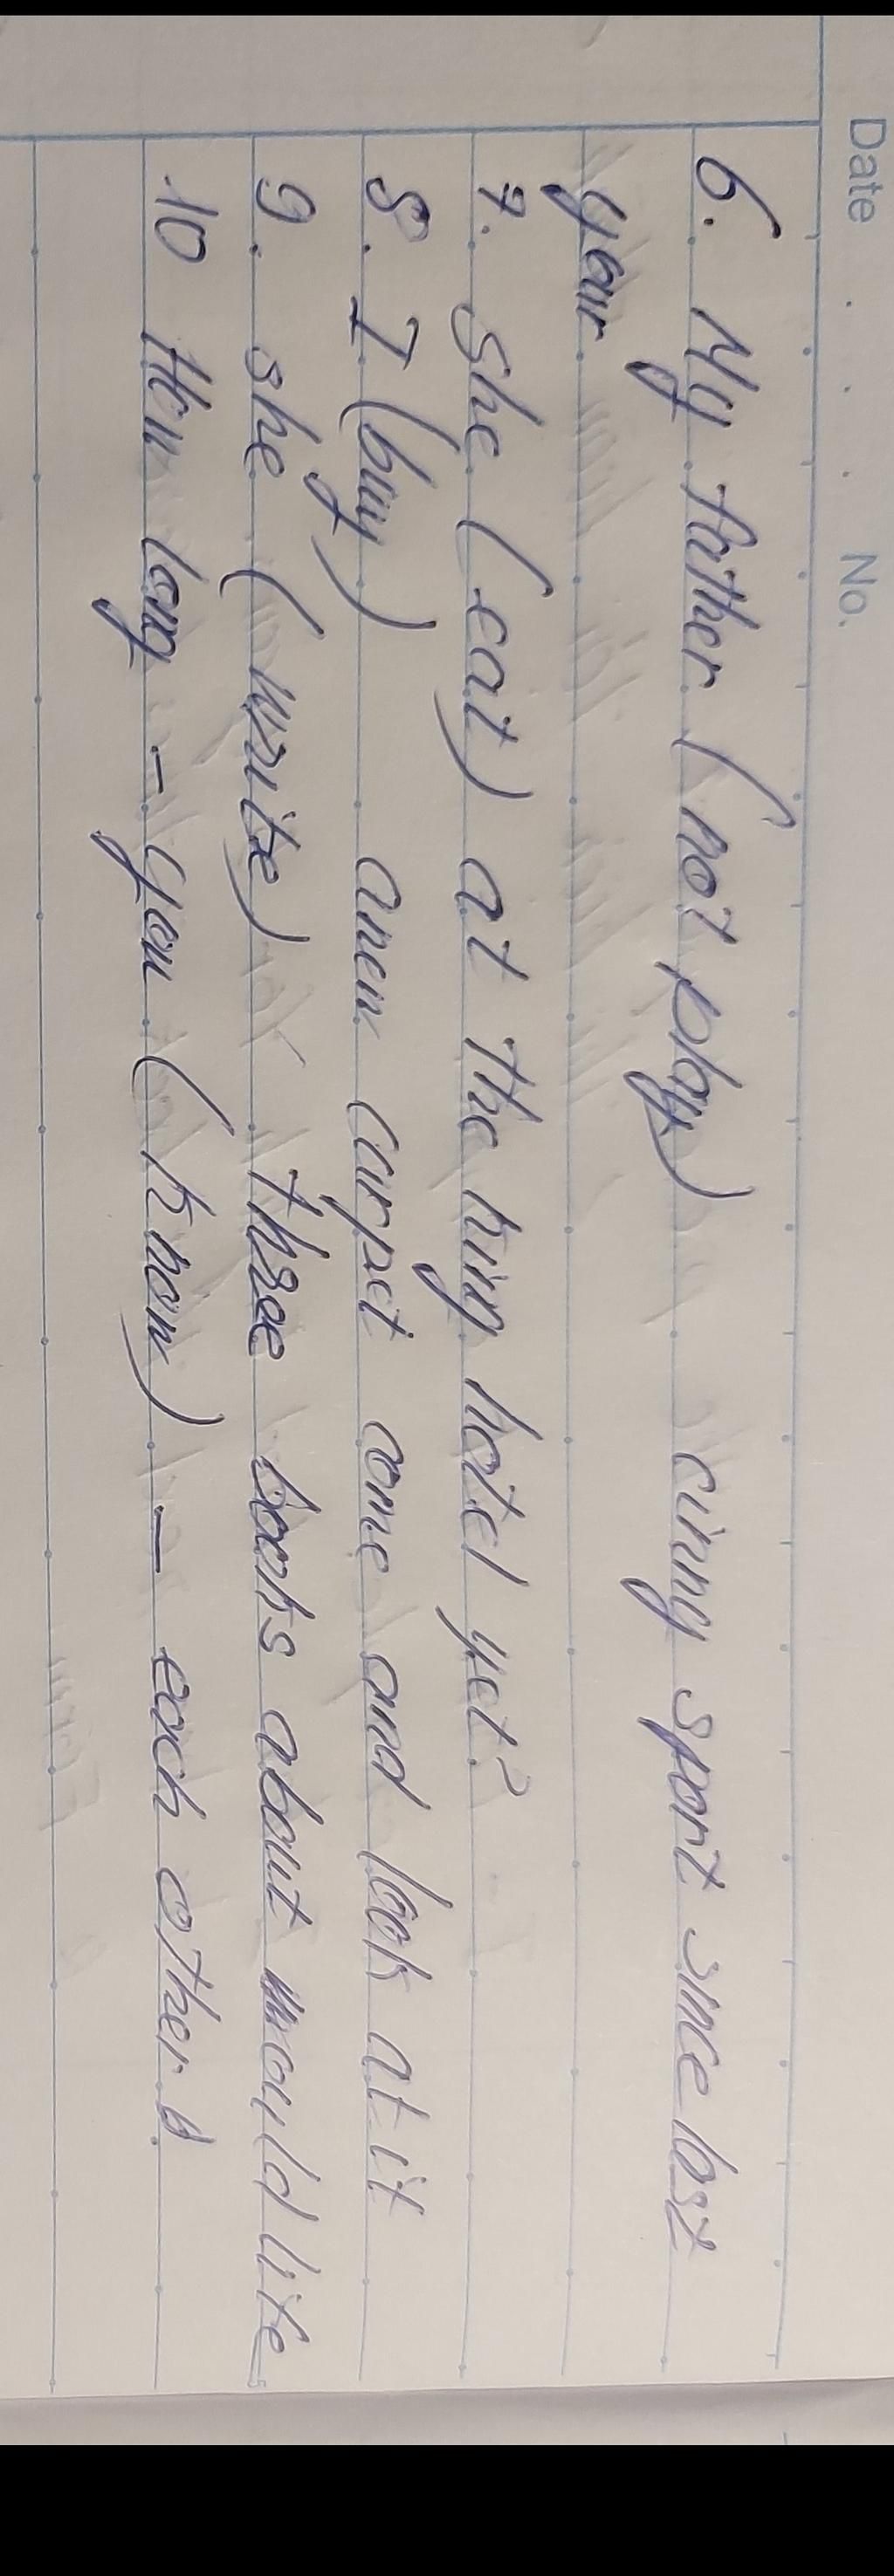 Date . . . No.
6. My father (not play) anny sport since last
year.
7. she (eat) at the king hotel yet?
8. I (buy) anew carpet come and look at it
9. she (write) three books about would life
10 How long - you (know) - each other